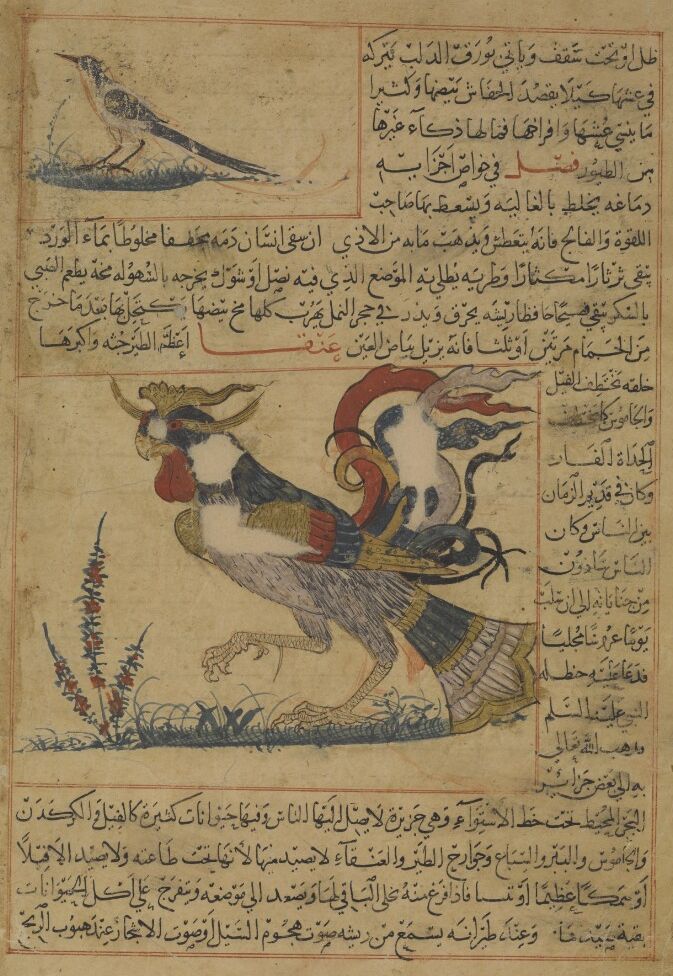 ظل او تحت سقف وياتي بورق الدلب يتركه
في عشها كيلا يقصد الخفاش بيضها وكثيرا
ما ينسى عشها وافراخها فما لها ذكاء غيرها
من الطيور فصل في خواص اجزايه
دماغه يخلط بالغاليه ويسعط بها صاحب
اللقوة والفالج فانه يتعطش ويذهب مابه من الاذي ان سقى انسان دمه مجففا مخلوطا بماء الورد
يبقى ثرثارا مكثارا وطريه يطلي به الموضع الذي فيه نصل او شوك يخرجه بالسهوله مخه يطعم الصبي
بالسكر يبقى فصيحا حافظا ريشه يحرق ويذر في حجر النمل يهرب كلها مخ بيضها يكتحل بها بعد ما خرج
من الحمام مرتين او ثلثا فانه يزيل بياض العين عنقا اعظم الطير جثه واكبرها
خلقه تخطف الفيل
والجاموس كما تخطف
الحداة الفار
وكان في قديم الزمان
بين الناس وكان
الناس يتاذون
من جناياته الى ان سلب
يوما عروسا مجليا
فدعا عليه حنظله
النبي عليه السلم
فذهب الله تعالى
به الى بعض جزائر
البحر المحيط تحت خط الاستواء وهي جزيرة لا يصل اليها الناس وفيها حيوانات كثيرة كالفيل والكركدن
والجاموس والببر والسباع وجوارح الطير والعنقاء لا يصيد منها لانها تحت طاعته ولا يصيد الا فيلا
او سمكا عظيما او تنينا فاذا فرغ منه يخلى الباقي لها ويصعد الى موضعه ويتفرج على اكل الحيوانات
بقية وعند طيرانه يسمع من ريشه صوت هجوم السيل او صوت الاشجار عند هبوب الريح